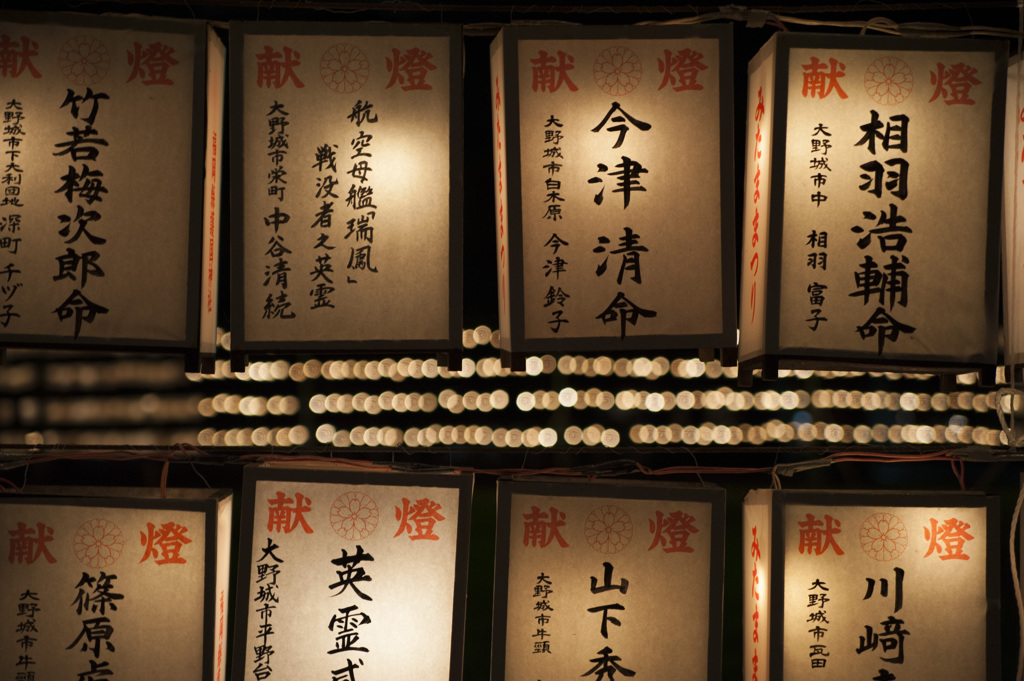 献 燈
竹若梅次郎命
大野城市下大利団地 深町 千ヅ子
献 燈
航空母艦「瑞鳳」
戦没者之英霊
大野城市栄町 中谷清続
みたままつり
献 燈
今津 清命
大野城市白木原 今津 鈴子
みたままつり
献 燈
相羽浩輔命
大野城市中 相羽 富子
献 燈
篠原
大野城市牛頸
献 燈
英霊弐
大野城市平野台
献 燈
山下秀
大野城市牛頸
みたまま
献 燈
川﨑
大野城市瓦田